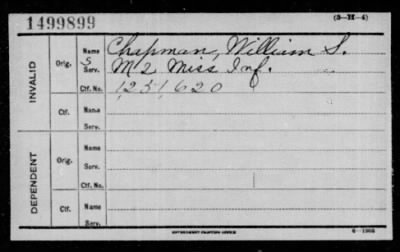 1499899
(3-II-4)
INVALID
Orig.
Name Chapman, William S.
S
Serv. M 2 Miss Inf.
Ctf. No. 1,251,620
Ctf.
Name
Serv.
DEPENDENT
Orig.
Name
Serv.
Ctf. No.
Ctf.
Name
Serv.
GOVERNMENT PRINTING OFFICE